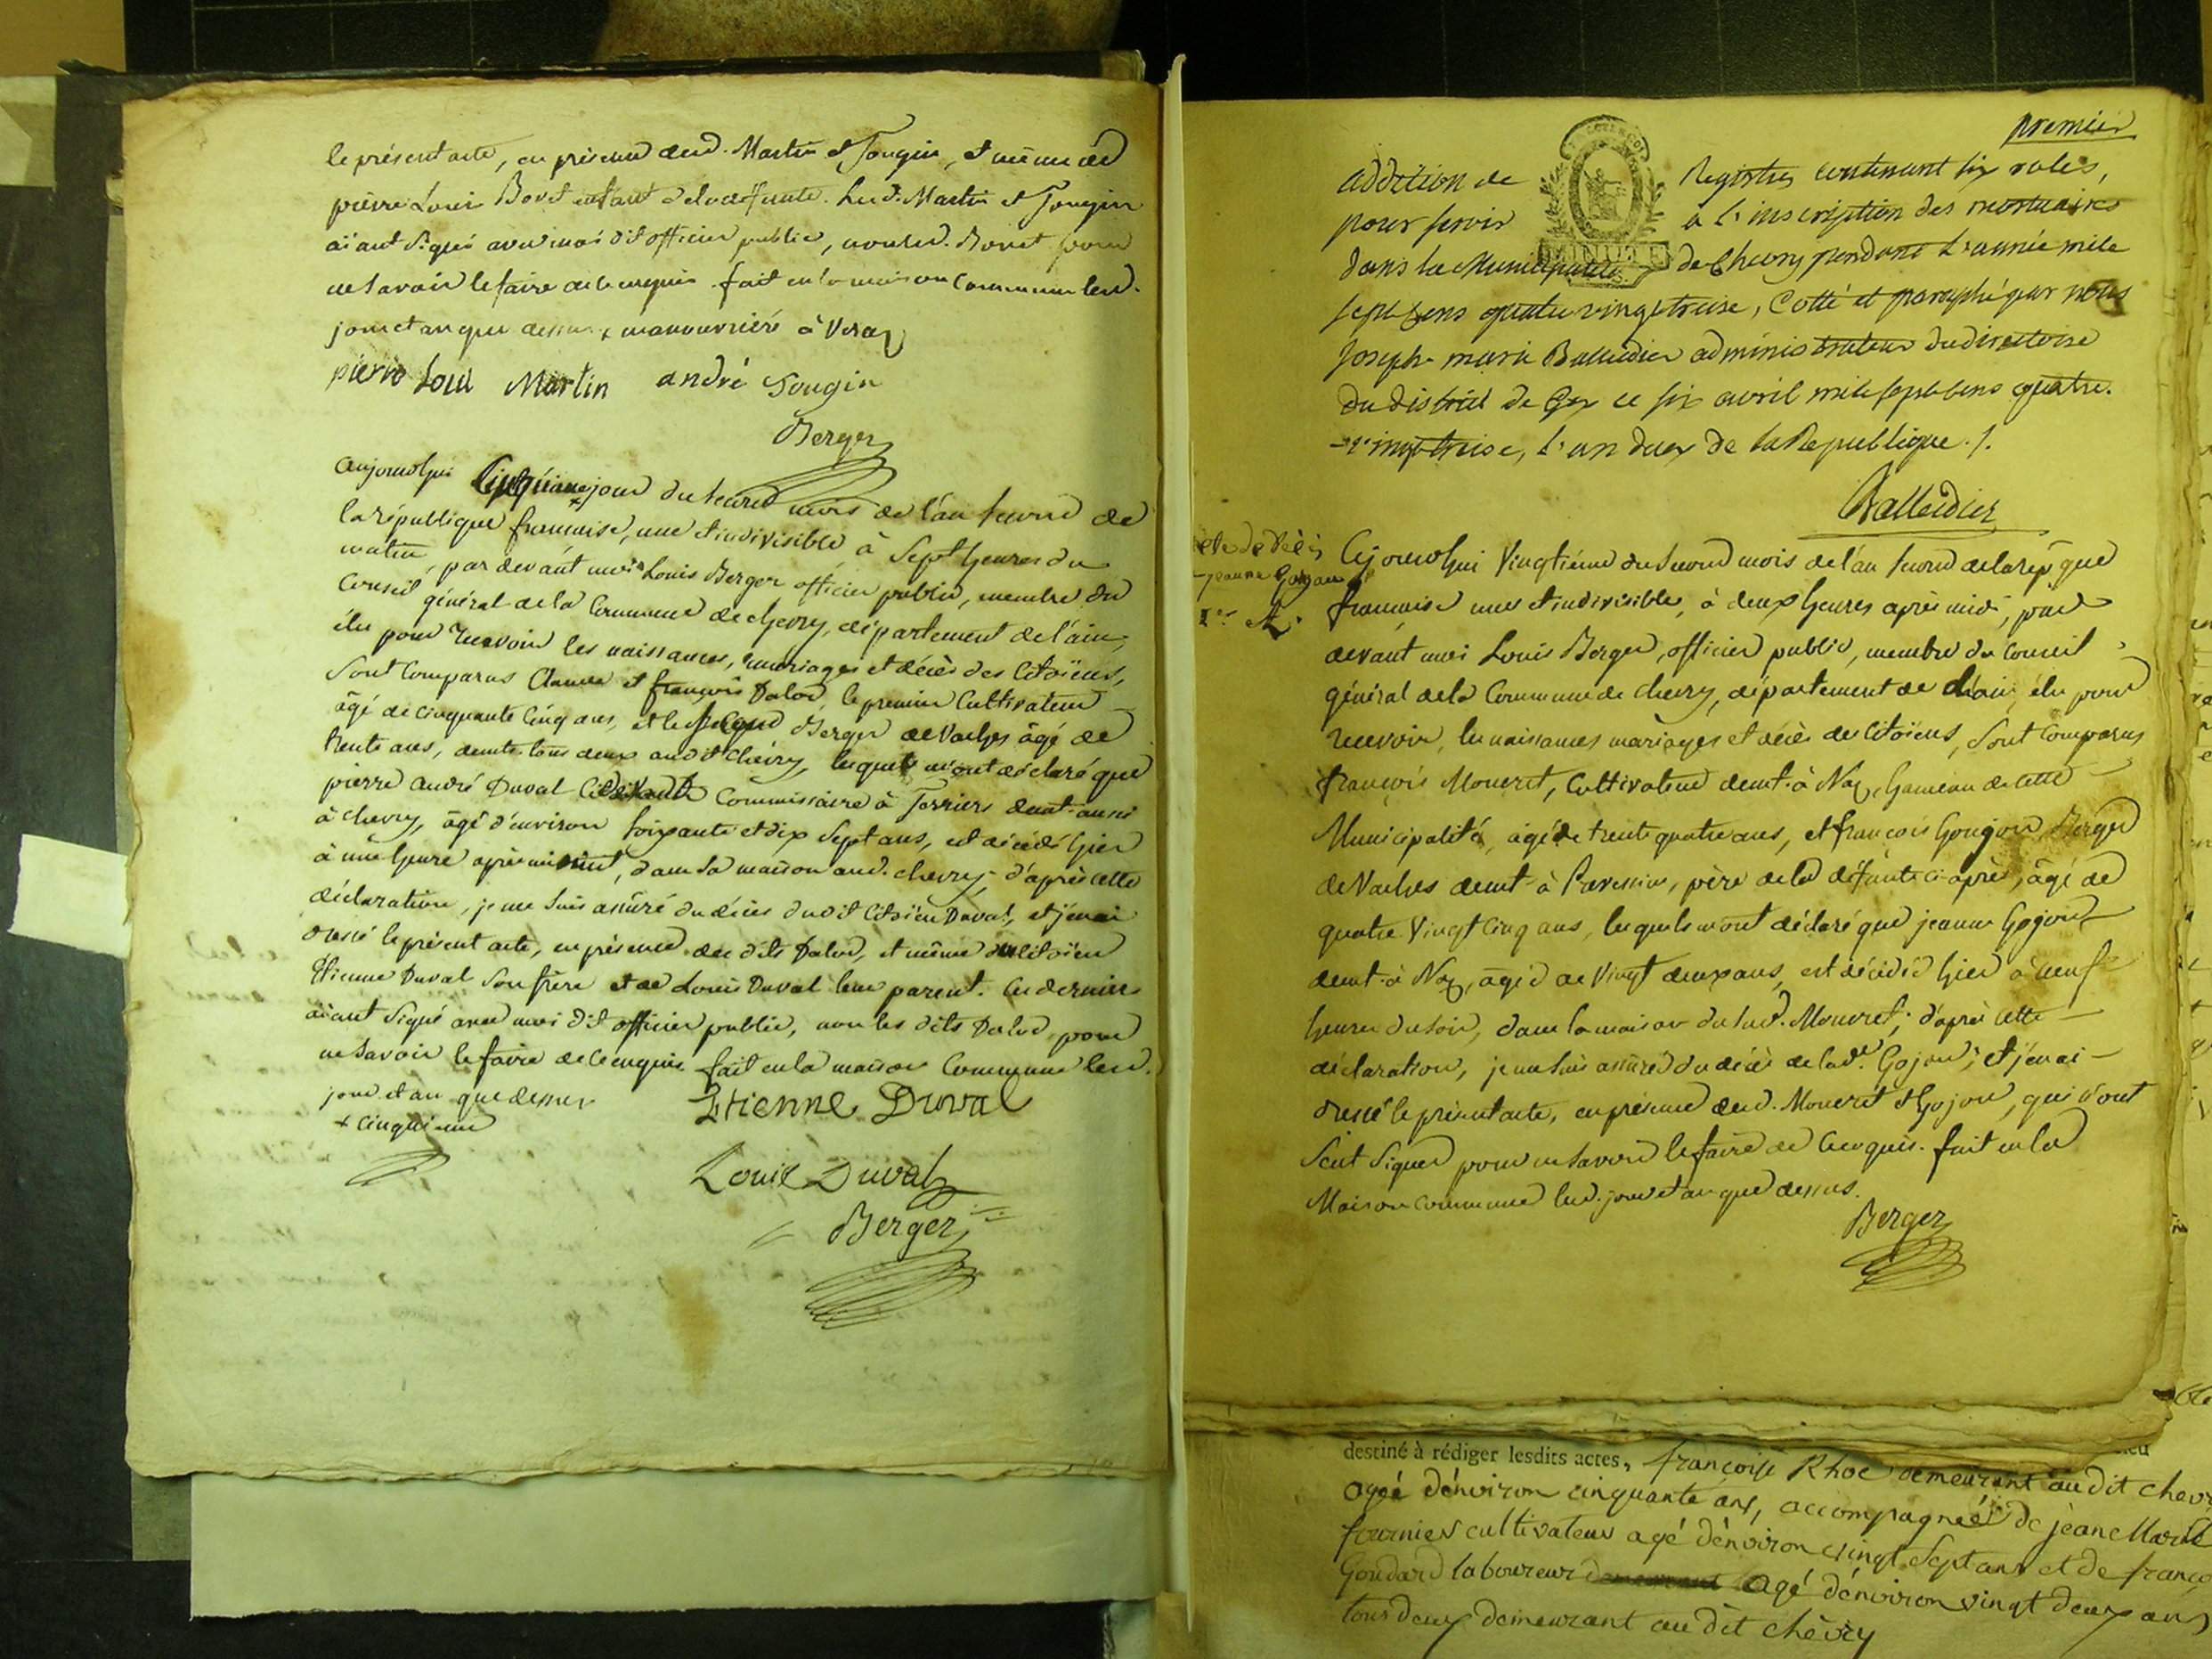 le présent acte, en présence desd. Martin et Tougin, et même de
pierre Louis Bovet enfant de la deffunte. Lesd. Martin et Tougin
aïant signés avec moi dit officier public, non led. Bovet pour
ne savoir le faire de ce enquis. fait en la maison Commune led.
jour et an que dessus + manouvrière à Veraz
pierre Loui Martin andré Tougin
Berger
Aujourd'hui Cinquième + jour du second mois de l'an second de
la république française, une et indivisible, à Sept heures du
matin, par devant moi Louis Berger officier public, membre du
Conseil général de la Commune de chevry, département de l'ain,
élu pour recevoir les naissances, mariages et décès des Citoïens,
Sont Comparus Claude et françois Dalod, le premier Cultivateur
âgé de cinquante Cinq ans, et le second Berger de Vaches âgé de
trente ans, demts. tous deux audit Chévry, lesquels m'ont déclaré que
pierre andré Duval Cidevant Commissaire à Terriers demt. aussi
à chevry, âgé d'environ soixante et dix Sept ans, est décédé hier
à une heure après minuit, dans sa maison aud. chevry; d'après cette
déclaration, je me suis assûré du décès dudit Citoïen Duval, et j'en ai
dressé le présent acte, en présence des dits Dalod, et même du Citoïen
Étienne Duval Son frère et de Louis Duval leur parent. Ces derniers
aïant Signé avec moi dit officier public, non les dits Dalod pour
ne savoir le faire de ce enquis. fait en la maison Commune led.
jour et an que dessus
+ cinquieme
Etienne Duval
Louis Duval
Berger
premier
addition de Registres contenant six roles,
pour servir à l'inscription des mortuaires
MINUTE
dans la Municipalité de Chevry pendant l'année mile
sept cens quatre vingt treise, Cotté et paraphé par nous
Joseph marie Balleidier administrateur du directoire
du district de Gex ce six avril mile sept cens quatre.
-vingt treise, l'an deux de la Republique ./.
Balleidier
acte de décès
jeanne Gojon
1er M.
Cejourd'hui Vingtième du second mois de l'an second de la rép̃que
française une et indivisible, à deux heures après midi, par
devant moi Louis Berger, officier public, membre du Conseil
général de la Commune de chevry, département de l'ain, élu pour
recevoir les naissances mariages et décès des Citoïens, sont Comparus
françois Mouret, Cultivateur demt. à Naz, hameau de cette
Municipalité, âgé de trente quatre ans, et françois Gougon Berger
de Vaches demt. à Prevessin, père de la défunte ci-après, âgé de
quatre Vingt Cinq ans, lesquels m'ont déclaré que jeanne Gojon
demt. à Naz, âgée de Vingt deux ans, est décédée hier à neuf
heures du soir, dans la maison du sud. Mouret; d'après cette
déclaration, je me suis assûré du décès de lade. Gojon; et j'en ai
dressé le présent acte, en présence desd. Mouret et Gojon, qui n'ont
Seut Signer pour ne savoir le faire de ce enquis. fait en la
Maison commune led. jour et an que dessus.
Berger
destiné à rédiger lesdits actes, françoise Rhoe demeurant au dit chevr
agée d'énviron cinquante ans, accompagnée de jèane Marie
fournier cultivateur agé d'énviron vingt Sept ans et de franço
Goudard laboureur agé d'énviron vingt deux ans
tous deux demeurant au dit chèvry